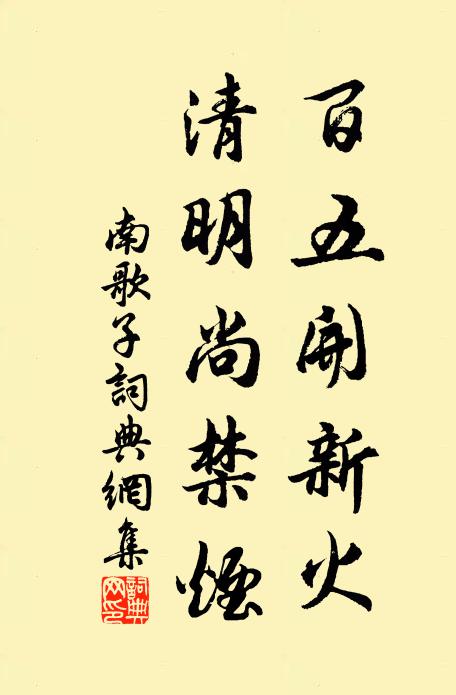 百五開新火
清明尚禁煙
南歌子詞典網集
詞典
网印